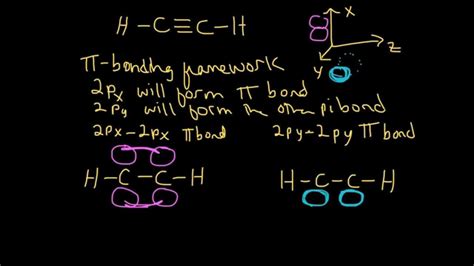 H-C≡C-H
x
z
y
π-bonding framework
2px will form π bond
2py will form the other pi bond
2px-2px π bond
2py-2py π bond
H-C-C-H
H-C-C-H